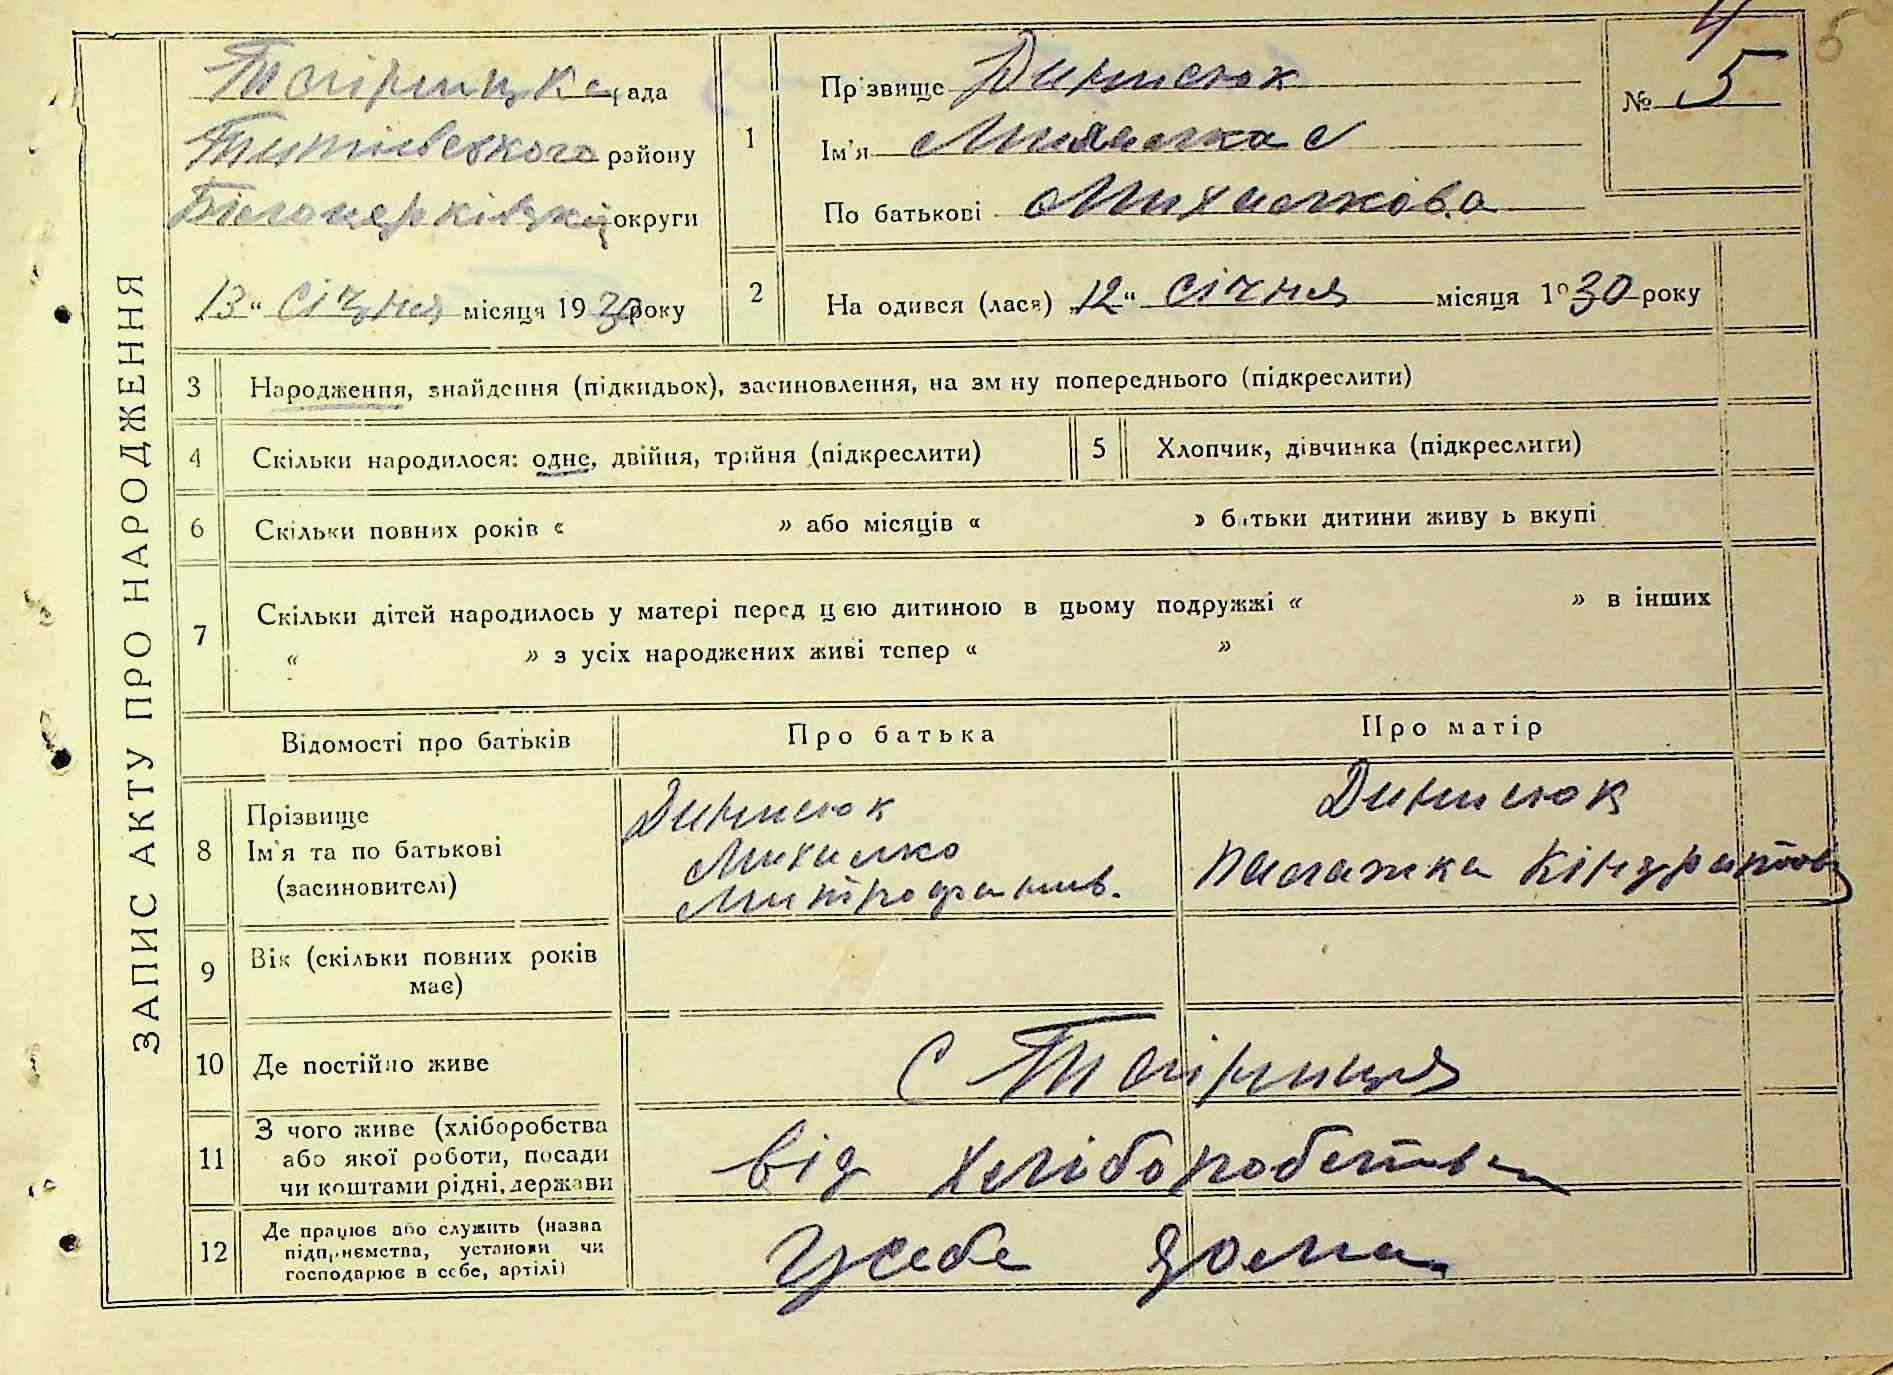 ЗАПИС АКТУ ПРО НАРОДЖЕННЯ
4
5
Рада
Титіївського району
Білоцерківської округи
„13“ січня місяця 1930 року
1
Прізвище Динисюк
Ім'я
По батькові Михилкова
№ 5
2
Народився (лася) „12“ січня місяця 1930 року
3 Народження, знайдення (підкидьок), засиновлення, на зміну попереднього (підкреслити)
4 Скільки народилося: одне, двійня, трійня (підкреслити)
5 Хлопчик, дівчинка (підкреслити)
6 Скільки повних років « » або місяців « » батьки дитини живуть вкупі
7 Скільки дітей народилось у матері перед цією дитиною в цьому подружжі « » в інших
« » з усіх народжених живі тепер « »
Відомості про батьків
Про батька
Про матір
8 Прізвище
Ім'я та по батькові
(засиновителі)
Динисюк
Михилко
Митрофанив.
Динисюк
Палажка Кіндратова
9 Вік (скільки повних років
має)
10 Де постійно живе
с Тайниця
11 З чого живе (хліборобства
або якої роботи, посади
чи коштами рідні, держави
від хліборобства
12 Де працює або служить (назва
підприємства, установи чи
господарює в себе, артілі)
У себе дома.